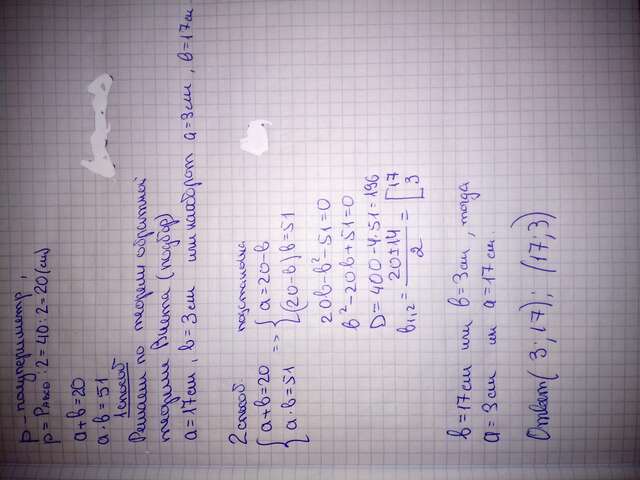 p - полупериметр,
p = Pавсд : 2 = 40 : 2 = 20 (см)
a + b = 20
a · b = 51
1 способ
Решаем по теореме обратной
теореме Виета (подбор)
a = 17 см, b = 3 см или наоборот a = 3 см, b = 17 см
2 способ подстановка
{ a + b = 20 => { a = 20 - b
{ a · b = 51 { (20 - b) b = 51
20b - b² - 51 = 0
b² - 20b + 51 = 0
D = 400 - 4 · 51 = 196
b₁,₂ = (20 ± 14) / 2 = [ 17 3
b = 17 см или b = 3 см, тогда
a = 3 см a = 17 см.
Ответ (3; 17); (17; 3)